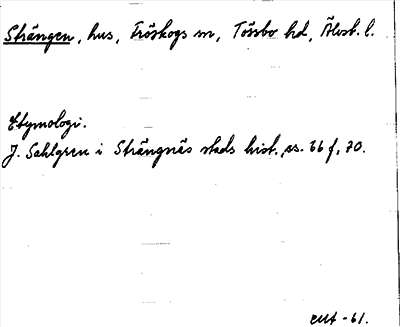 Strängen, hus, Fröskogs sn, Tössbo hd, Älvsb. l.
Etymologi.
J. Sahlgren i Strängnäs stads hist., ss. 66 f, 70.
-61.